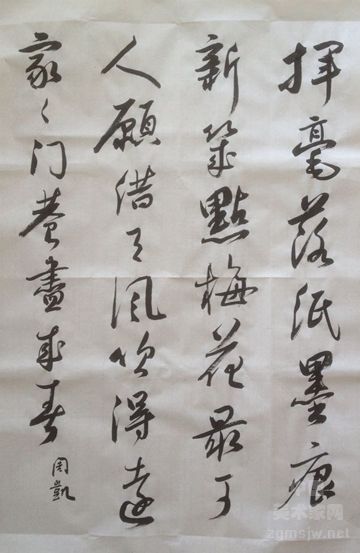 揮毫落紙墨痕
新幾點梅花最可
人願借天風吹得遠
家々门巷盡成春
周凱
美术家网
zgmsjw.net